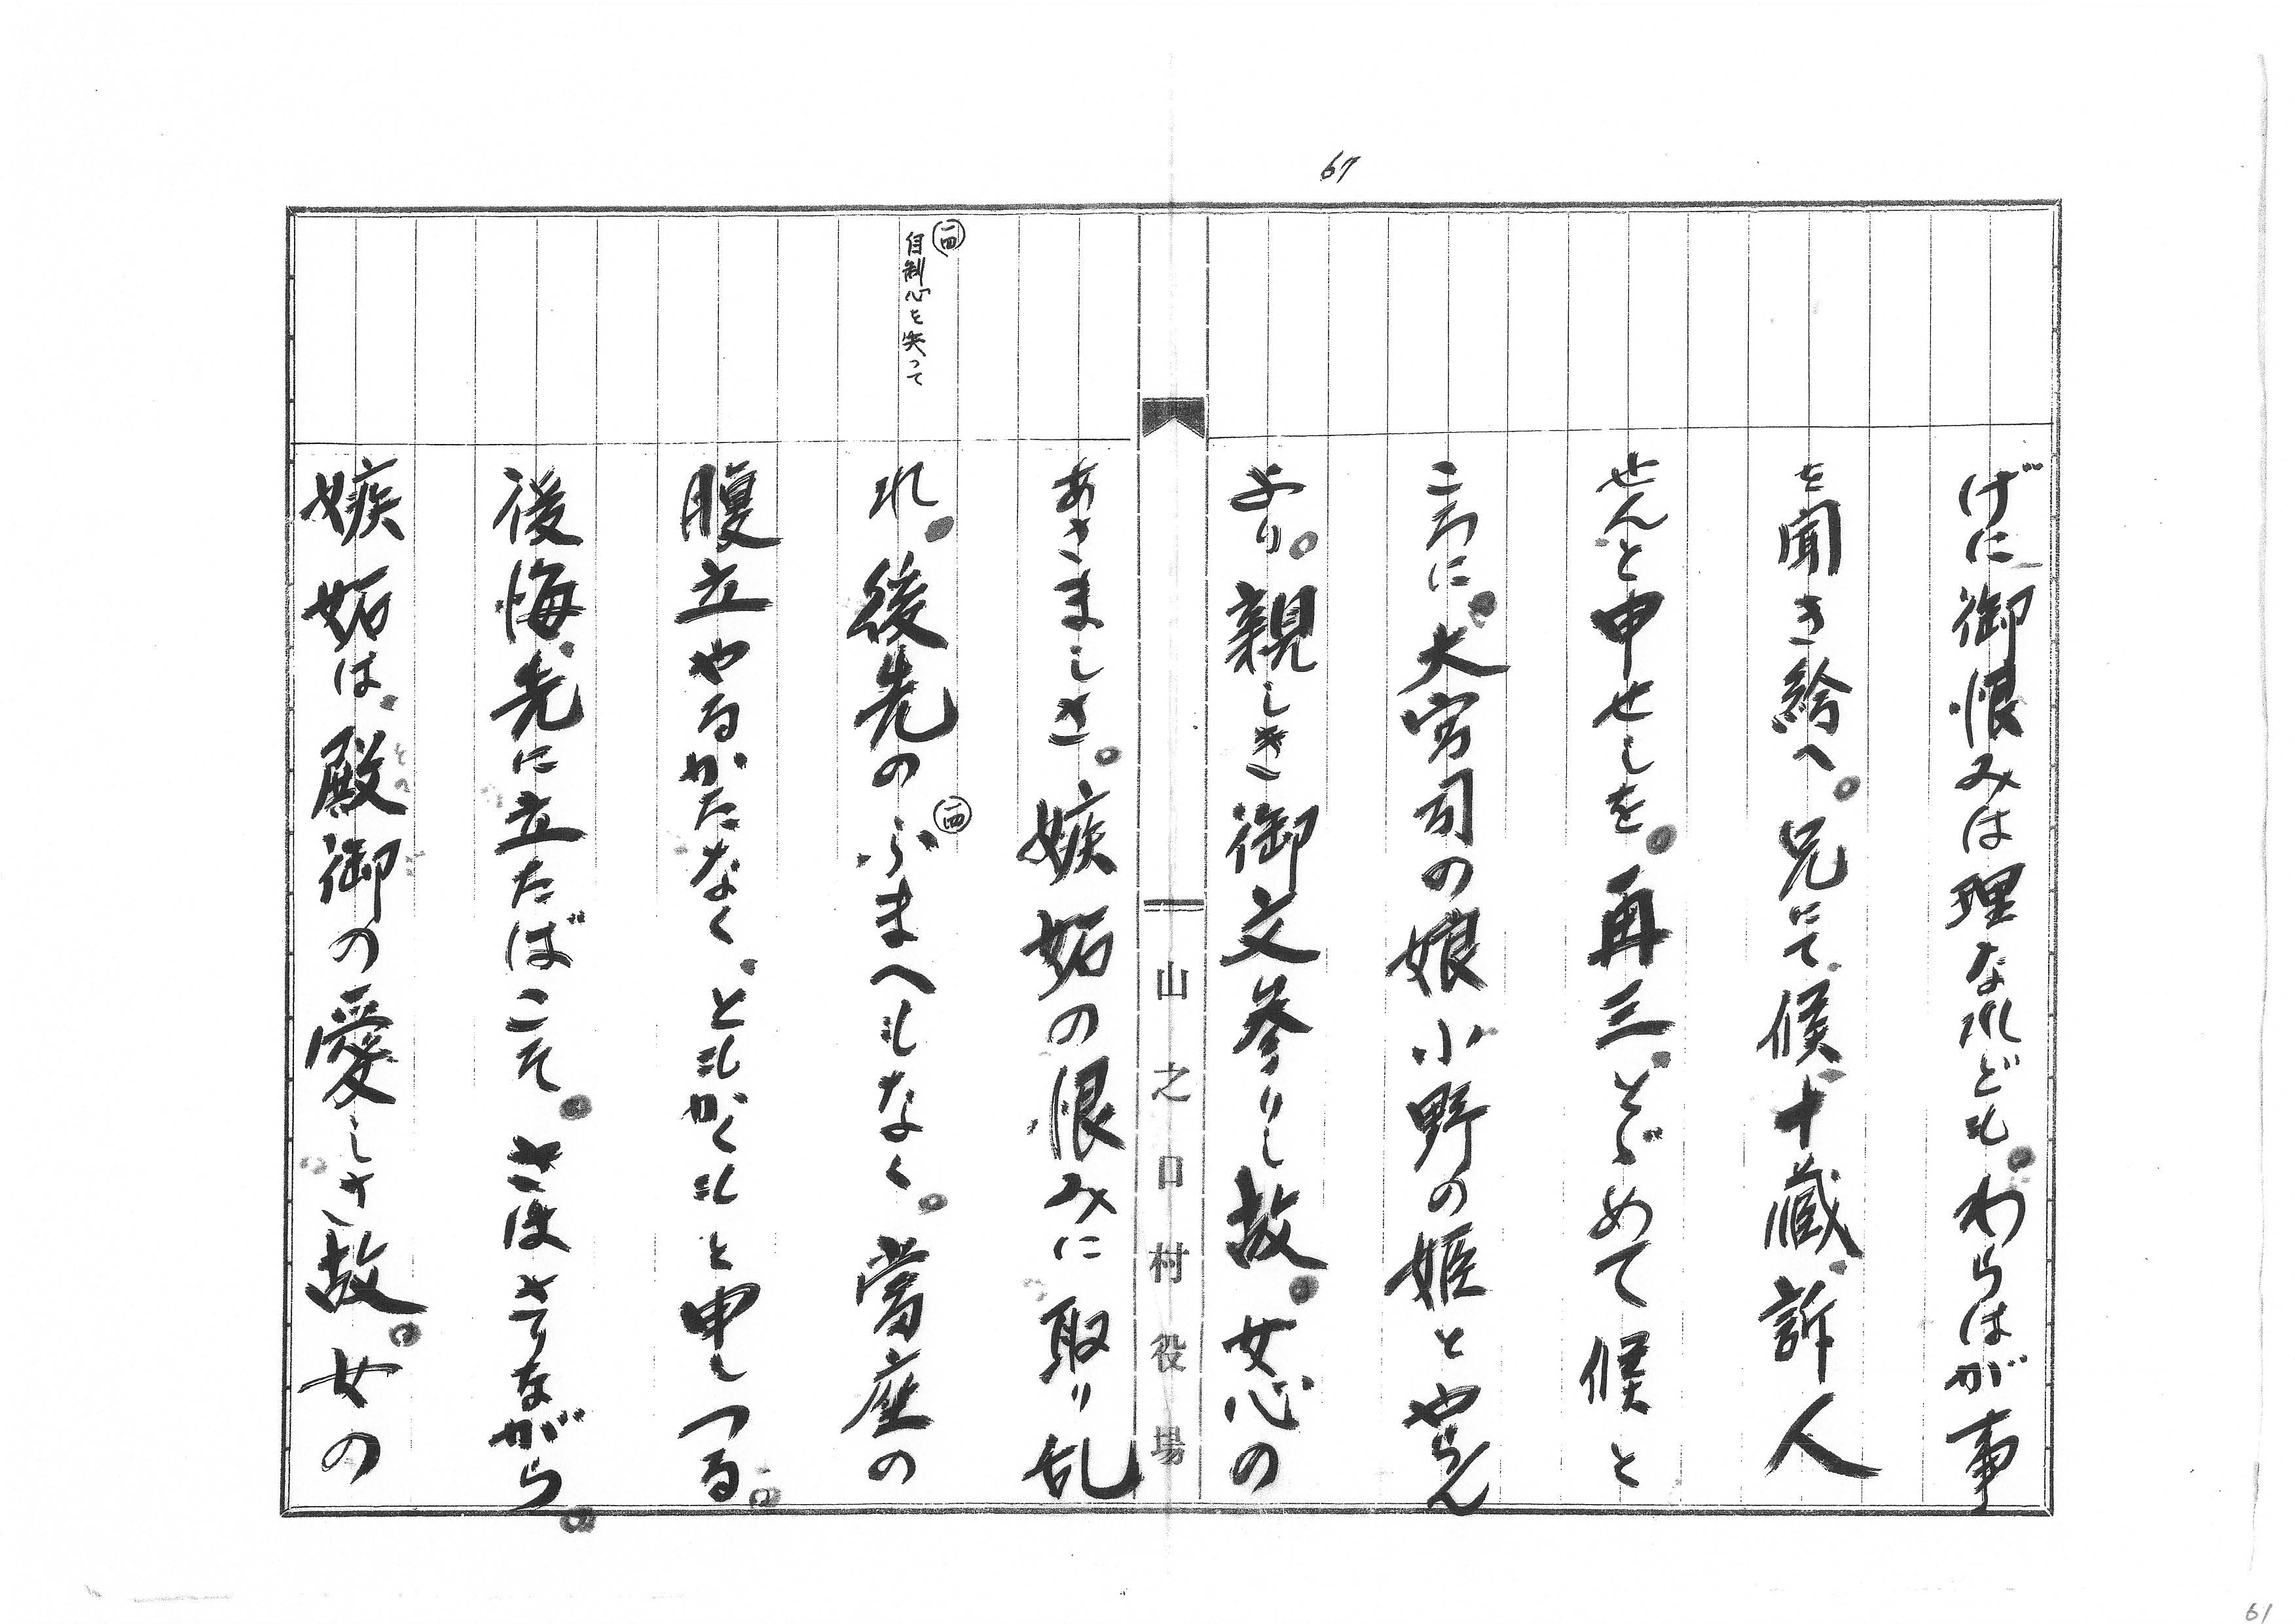 67
げに御恨みは理なれども。わらはが事
を聞き給へ。兄にて候十蔵。訴人
せんと申せしを。再三。とゞめて候と
ころに。大宮司の娘小野の姫とやらん
より。親しき御文参りし故。女心の
山之口村役場
あさましさ。嫉妬の恨みに取り乱
㊁四
自制心を失って
れ。後先のふまへもなく。當座の
腹立やるかたなく。ともかくもと申しつる。
後悔。先に立たばこそ。さはさりながら。
嫉妬は。殿御の愛しさ故。女の
との
61